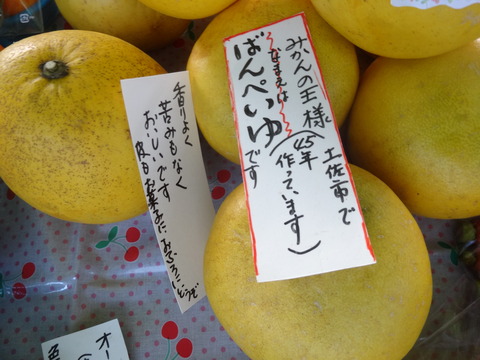 みかんの王様
〜なまえは〜
ばんぺいゆです
土佐市で
(45年
作っています)
香りよく
苦みもなく
おいしいです
皮はお菓子に おふろにどうぞ
オー